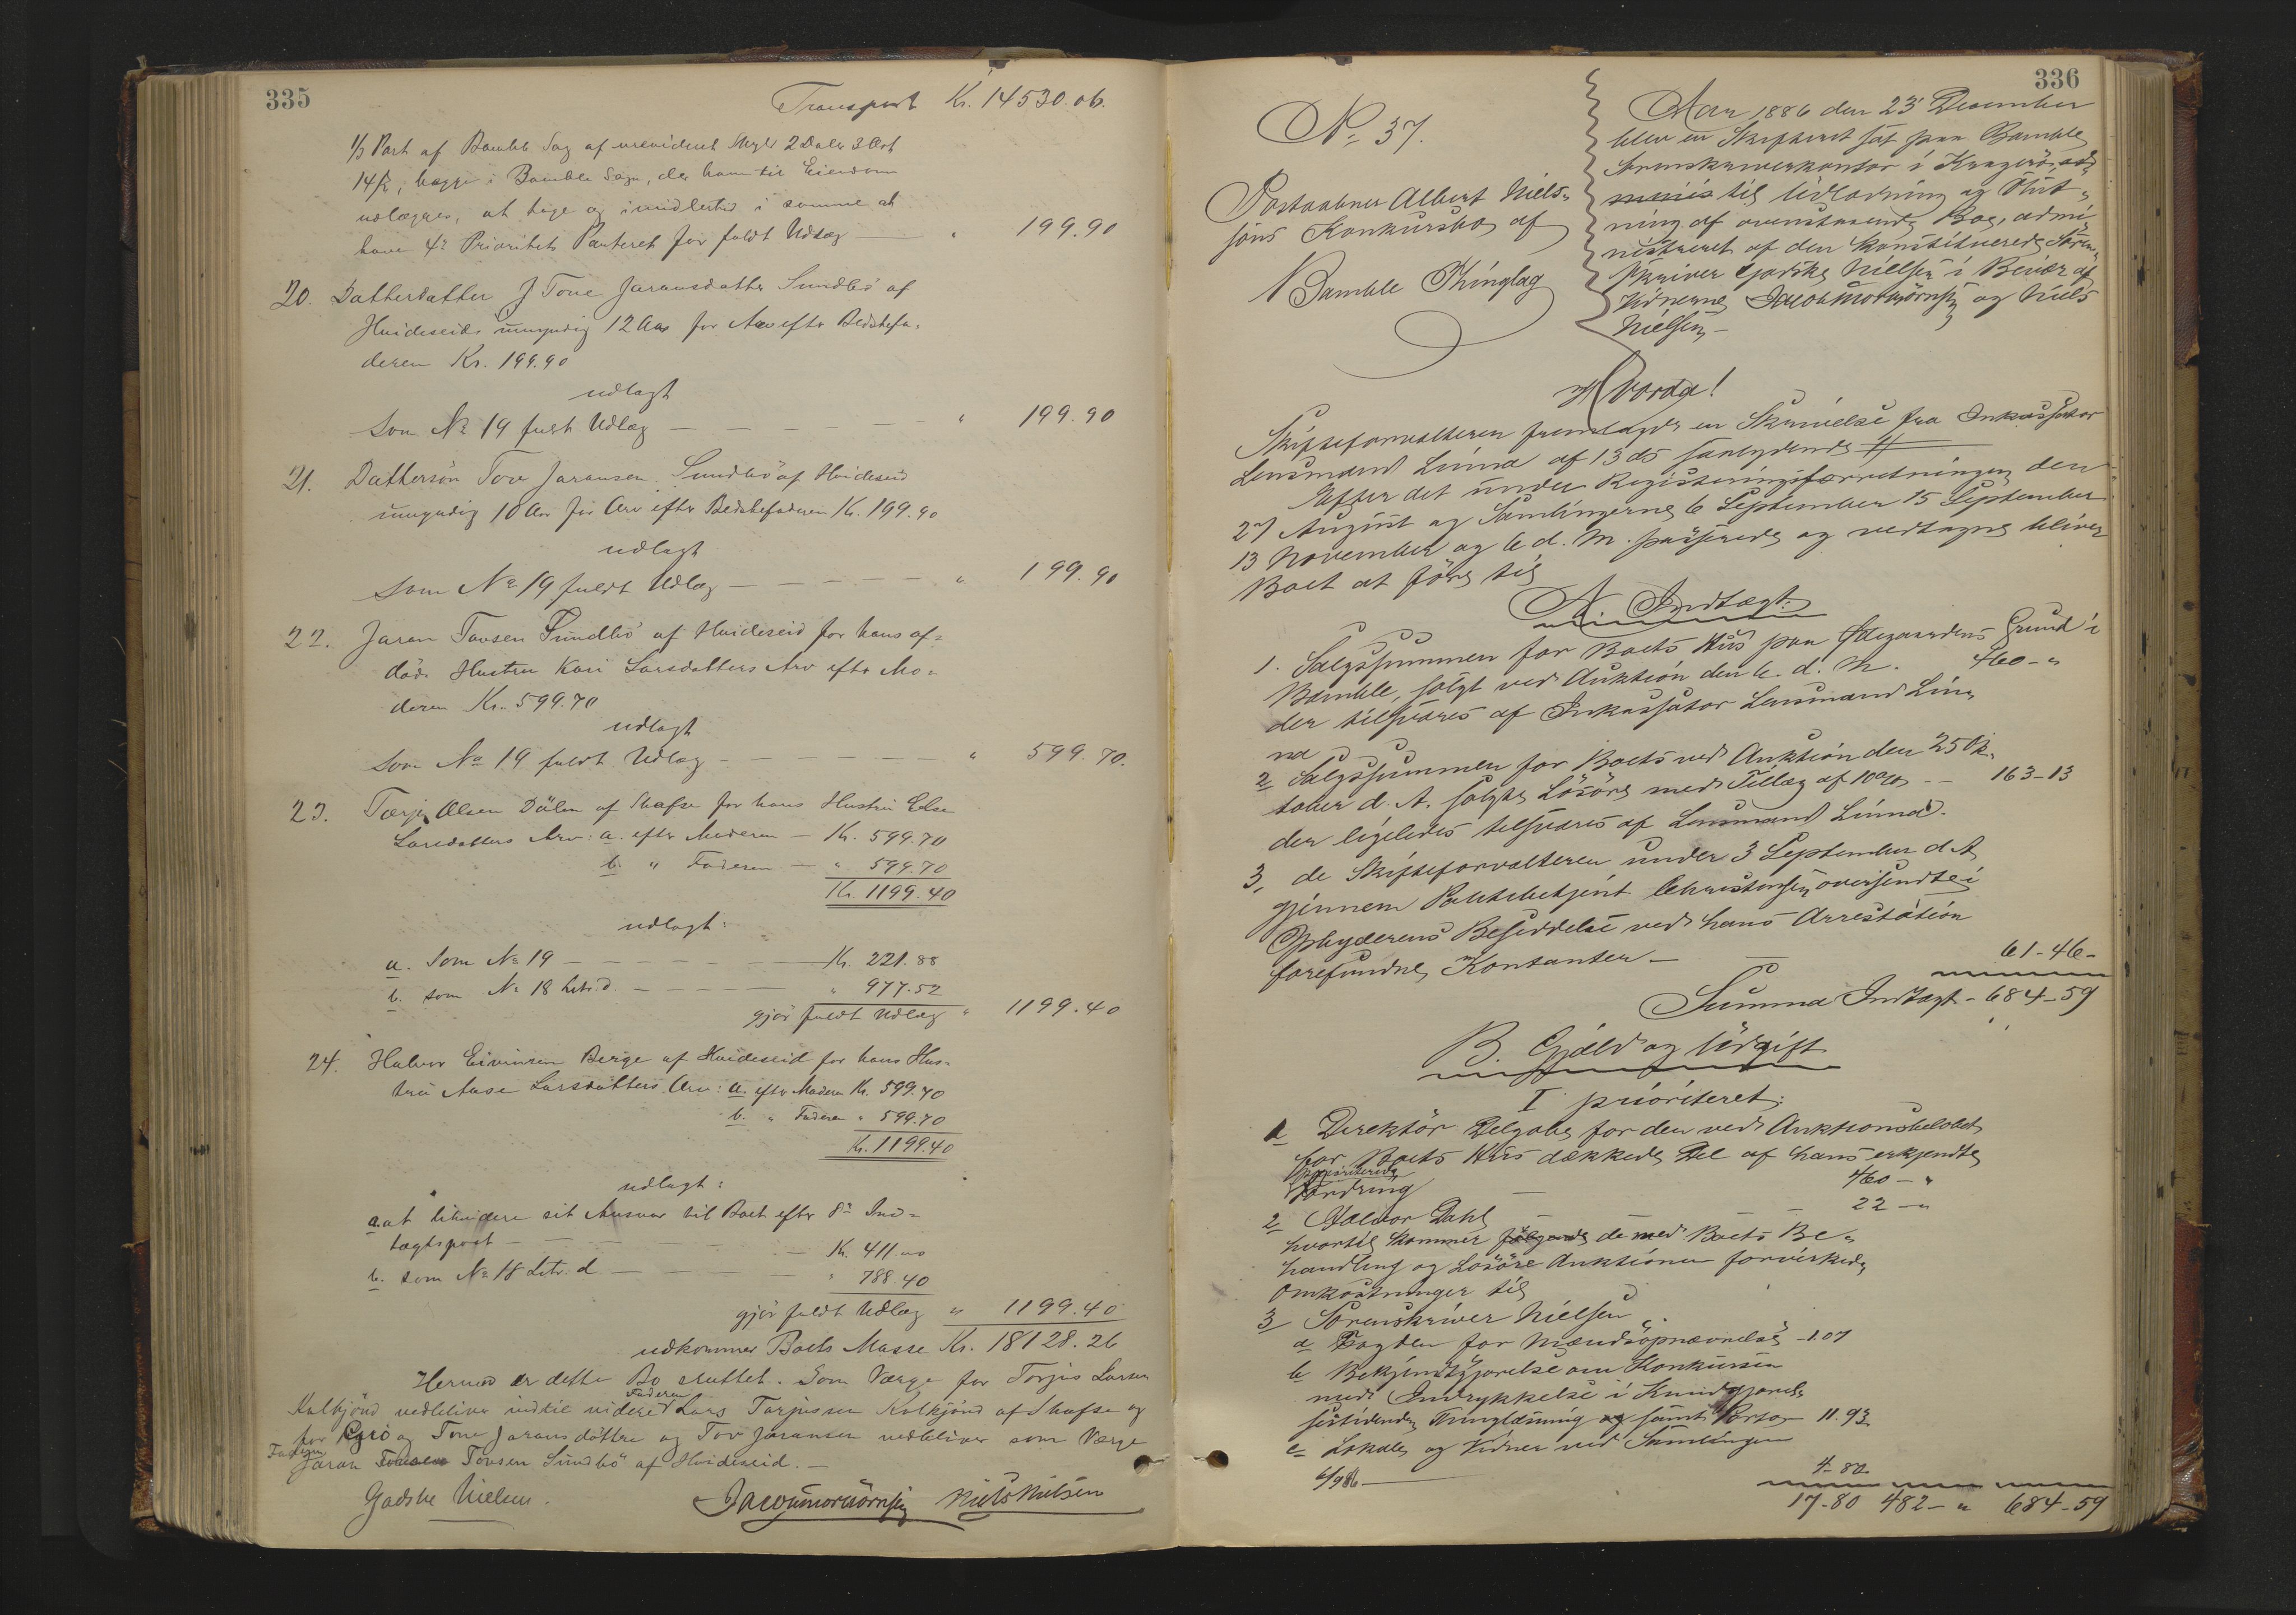 335
Transport Kr. 14530.06.
1/3 Part af Bamble Sag af urevideret Skyld 2 Daler 3 Ort
14 ß, begge i Bamble Sogn, der ham til Eiendom
udlægges, at tage og imidlertid i samme at
have 4de Prioritets Panteret for fuldt Udlæg — " 199.90
20. Datterdatter Tone Jaransdatter Sundbö af
Hvideseid umyndig 12 Aar for Arv efter Bedstefa-
deren Kr. 199.90
udlagt
Som No 19 fuldt Udlæg — " 199.90
21. Dattersön Tov Jaransen Sundbö af Hvideseid
umyndig 10 Aar for Arv efter Bedstefaderen Kr. 199.90
udlagt
Som No 19 fuldt Udlæg — " 199.90
22. Jaran Tovsen Sundbö af Hvideseid for hans af-
döde Hustru Kari Larsdatters Arv efter Mo-
deren Kr. 599.70
udlagt
Som No 19 fuldt Udlæg — " 599.70.
23. Tarje Olsen Dålen af Skafse for hans Hustru Else
Larsdatters Arv: a. efter Moderen — Kr. 599.70
b. " Faderen — " 599.70
Kr. 1199.40
udlagt:
a. Som No 19 — Kr. 221.88
b. som No 18 Litr. d. — " 977.52
gjör fuldt Udlæg " 1199.40
24. Halvor Eivindsen Berge af Hvideseid for hans Hus-
tru Aase Larsdatters Arv: a. efter Moderen Kr. 599.70
b. " Faderen " 599.70
Kr. 1199.40
udlagt:
a. at likvidere sit Ansvar til Boet efter 8de Ind-
tægtspost — Kr. 411.00
b. som No 18 Litr. d — " 788.40
gjör fuldt Udlæg " 1199.40
udkommer Boets Masse Kr. 18128.26
Hermed er dette Bo sluttet. Som Værge for Torjus Larsen
Kolkjönd vedbliver indtil videre Faderen Lars Tarjussen Kolkjönd af Skafse og
for Gyro og Tone Jaransdöttre og Tov Jaransen vedbliver som Værge
Faderen Jaran Tovsen Tovsen Sundbö af Hvideseid. —
Gadske Nielsen. Jacob Mortbjörnsen Niels Nielsen
336
No 37.
Postaabner Albert Niels-
söns Konkursbo af
Bamble Thinglag
Aar 1886 den 23 December
blev en Skifteret sat paa Bamble
Sorenskriverkontor i Kragerö, ad
til Udlodning og Slut-
ning af ovenstaaende Bo, admi-
nistreret af den konstituerede Soren-
skriver Gadske Nielsen i Beivær af
Vidnerne Jacob Mortbjörnsen og Niels
Nielsen —
Hvorda!
Skifteforvalteren fremlagde en Skrivelse fra Inkassator
Lensmand Linna af 13 ds saalydende #
Efter det under Registeringsforretningen den
27 August og Samlingerne 6 September 15 September
13 November og 6 d. M. passerede og vedtagne bliver
Boet at före til
A. Indtægt:
1. Salgssummen for Boets Hus paa Ödegaardens Grund i
Bamble, solgt ved Auktion den 6. d. M. 460 - "
der tilsvares af Inkassator Lensmand Lin-
na
2 Salgssummen for Boets ved Auktion den 25 Ok-
tober d. A. solgte Lösöre med Tillæg af 10% — 163-13
der ligeledes tilsvares af Lensmand Linna.
3, de Skifteforvalteren under 3 September d. A
gjennem Politibetjent Christensen oversendte i
Opbyderens Besiddelse ved hans Arrestation
forefundne Kontanter — 61-46-
Summa Indtægt - 684-59
B. Gjæld og Udgift
I prioriteret:
1 Direktör Delgobe for den ved Auktionsbelöbet
for Boets Hus dækkede Del af hans erkjendte
prioriterede
Fordring — 460 - "
2 Halvor Dahl — 22 - "
hvortil kommer fölgende de med Boets Be-
handling og Lösöre Auktionen forvirkede
Omkostninger til
3 Sorenskriver Nielsen
a Fogden for Mændsopnævnelse - 1.07
b Bekjendtgjörelse om Konkursen
med Indrykkelse i Kundgjörel-
sestidende, Thinglæsning og samt Porto — 11.93
c Lokale og Vidner ved Samlingen
6/9 86 — 4-80
17-80 482 - " 684-59